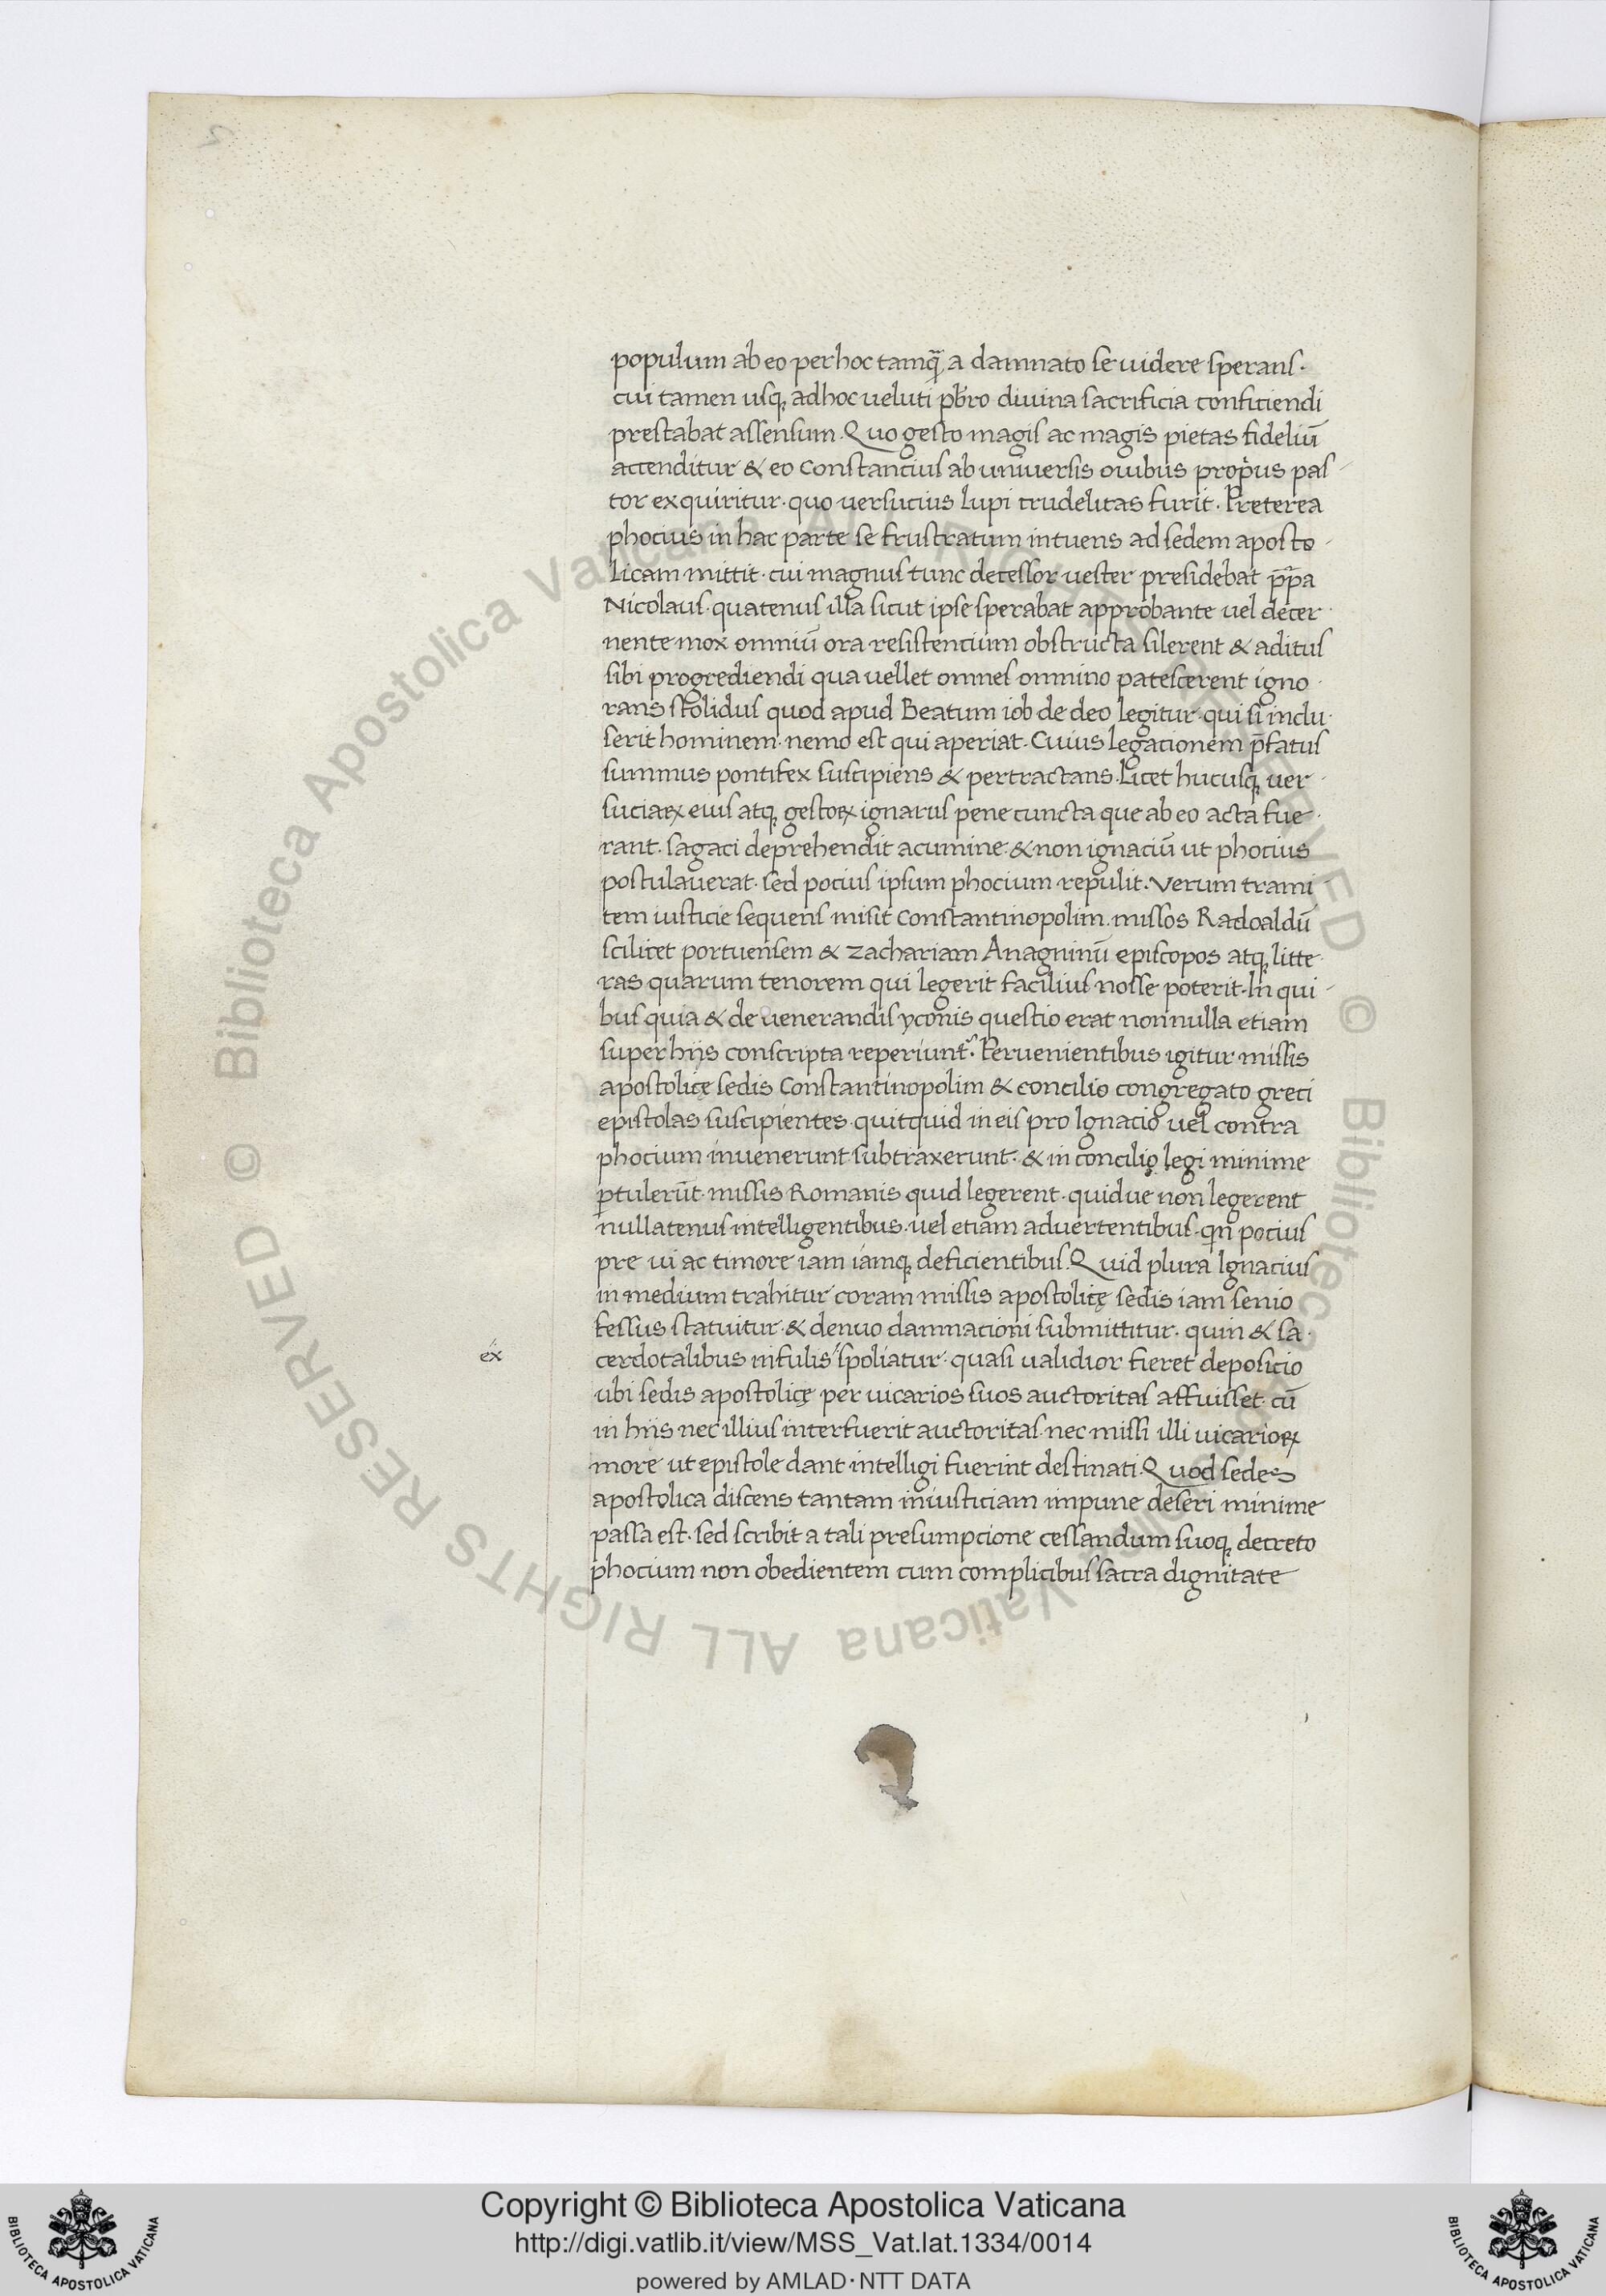 populum ab eo per hoc tamq̃ a damnato se uidere sperans.
cui tamen usq; adhoc ueluti pb̃ro diuina sacrificia conficiendi
prestabat assensum. Quo gesto magis ac magis pietas fideliũ
accenditur & eo constancius ab uniuersis ouibus proprius pas
tor exquiritur. quo uersucius lupi crudelitas furit. Preterea
phocius in hac parte se frustratum intuens ad sedem aposto
licam mittit. cui magnus tunc decessor uester presidebat pp̃a
Nicolaus. quatenus illa sicut ipse sperabat approbante uel decer
nente mox omniũ ora resistencium obstructa silerent & aditus
sibi progrediendi qua uellet omnes omnino patescerent igno
rans stolidus quod apud Beatum iob de deo legitur. qui si inclu
serit hominem. nemo est qui aperiat. Cuius legacionem p̃fatus
summus pontifex suscipiens & pertractans. Licet hucusq; uer
suciaꝝ eius atq; gestoꝝ ignarus pene cuncta que ab eo acta fue
rant. sagaci deprehendit acumine. & non ignaciũ ut phocius
postulauerat. sed pocius ipsum phocium repulit. Verum trami
tem iusticie sequens misit Constantinopolim. missos Radoaldũ
scilicet portuensem & Zachariam Anagninũ episcopos atq; litte
ras quarum tenorem qui legerit facilius nosse poterit. In qui
bus quia & de uenerandis yconis questio erat nonnulla etiam
super hijs conscripta reperiunt᷑. Peruenientibus igitur missis
apostolicę sedis Constantinopolim & concilio congregato greci
epistolas suscipientes. quitquid in eis pro Ignacio uel contra
phocium inuenerunt subtraxerunt. & in concilio legi minime
ꝑtulerũt. missis Romanis quid legerent. quidue non legerent
nullatenus intelligentibus. uel etiam aduertentibus. qñ pocius
pre ui ac timore iam iamq; deficientibus. Quid plura Ignacius
in medium trahitur coram missis apostolicę sedis iam senio
fessus statuitur. & denuo damnacioni submittitur. quin & sa
ex
cerdotalibus infulis spoliatur. quasi ualidior fieret deposicio
ubi sedis apostolicę per uicarios suos auctoritas affuisset. cũ
in hiis nec illius interfuerit auctoritas. nec missi illi uicarioꝝ
more ut epistole dant intelligi fuerint destinati. Quod sedes
apostolica discens tantam iniusticiam impune deseri minime
passa est. sed scribit a tali presumpcione cessandum suoq; decreto
phocium non obedientem cum complicibus sacra dignitate
© Biblioteca Apostolica Vaticana ALL RIGHTS RESERVED © Biblioteca Apostolica Vaticana ALL RIGHTS RESERVED
Copyright © Biblioteca Apostolica Vaticana
http://digi.vatlib.it/view/MSS_Vat.lat.1334/0014
powered by AMLAD·NTT DATA
BIBLIOTECA APOSTOLICA VATICANA
BIBLIOTECA APOSTOLICA VATICANA